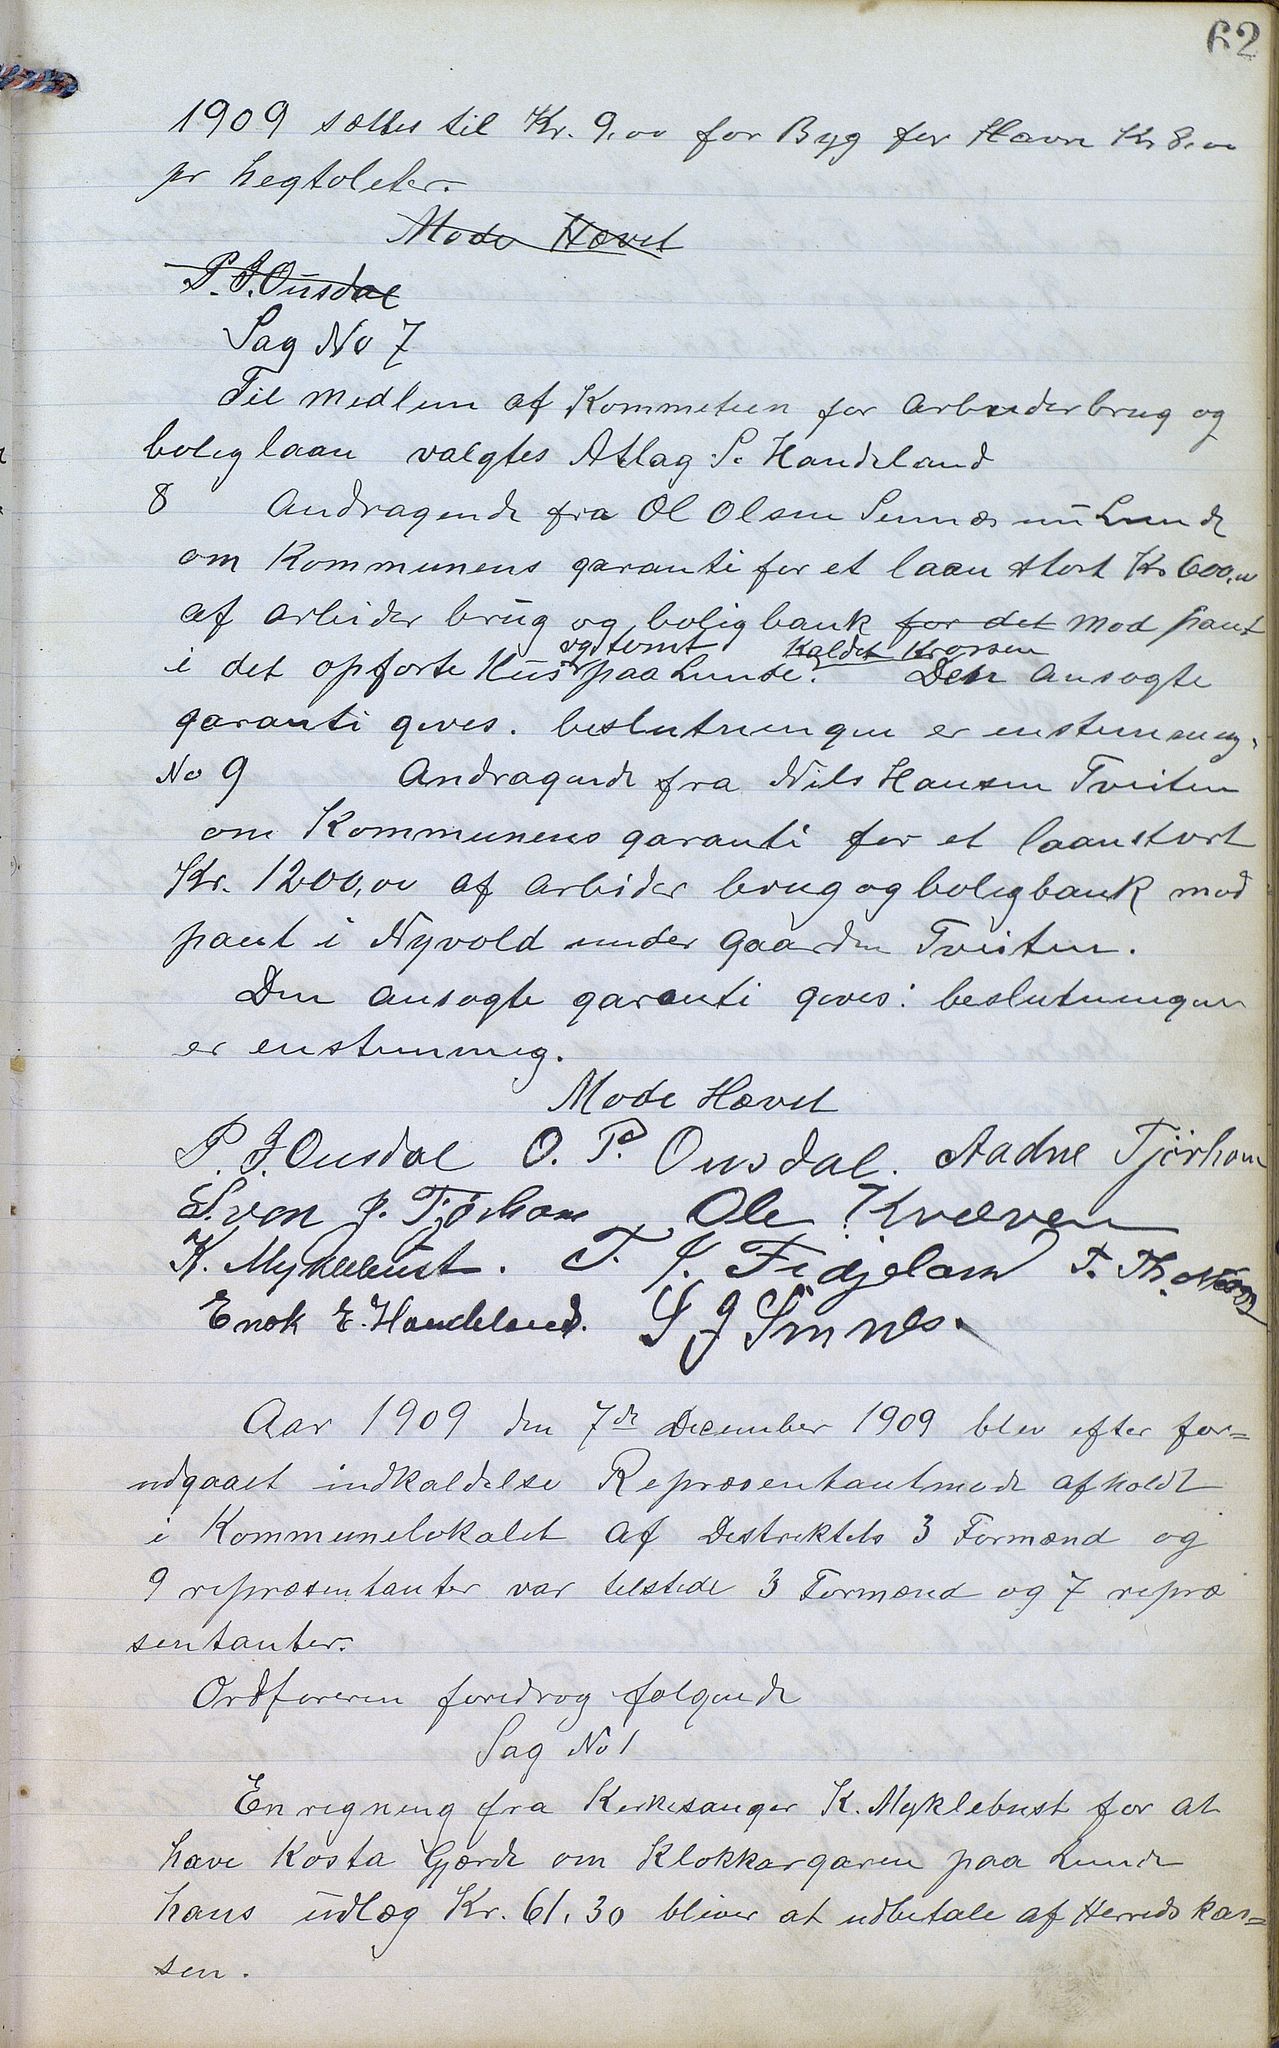 62
1909 sættes til Kr. 9,00 for Byg for Havre Kr 8,00
pr hegtoleter.
Møde Hævet
P. J. Ousdal
Sag No 7
Til medlem af Kommeteen for arbeiderbrug og
boliglaan valgtes Atlag S. Handeland
8 Andragende fra Ol Olsen Sinnes nu Lunde
om Kommunens garanti for et laan stort Kr 600,00
af arbeider brug og boligbank for det mod pant
og tomt kaldet Krossen
i det opførte Hus paa Lunde. Den ansøgte
garanti gives. beslutningen er enstemmig.
No 9 Andragende fra Nils Hansen Tveiten
om Kommunens garanti for et laan stort
Kr. 1200,00 af arbeider brug og boligbank mod
pant i Nyvold under gaarden Tveiten.
Den ansøgte garanti gives: beslutningen
er enstemmig.
Møde Hævet
P. J. Ousdal O. P. Ousdal. Aadne Tjørhom
S.ven J. Tjørhom Ole Kvæven
K. Myklebust. T. J. Fidjeland T. Th.
Enok E. Handeland. S J Sinnes.
Aar 1909 den 7de December 1909 blev efter for=
udgaaet indkaldelse Repræsentantmøde afholdt
i Kommunelokalet af Destriktets 3 Formænd og
9 repræsentanter var tilstede 3 Formænd og 7 repræ
sentanter.
Ordføreren foredrog følgende
Sag No 1
En regning fra Kirkesanger K. Myklebust for at
have kosta Gjærde om Klokkargaren paa Lunde
hans udlæg Kr. 61,30 bliver at udbetale af Herredskas=
sen.